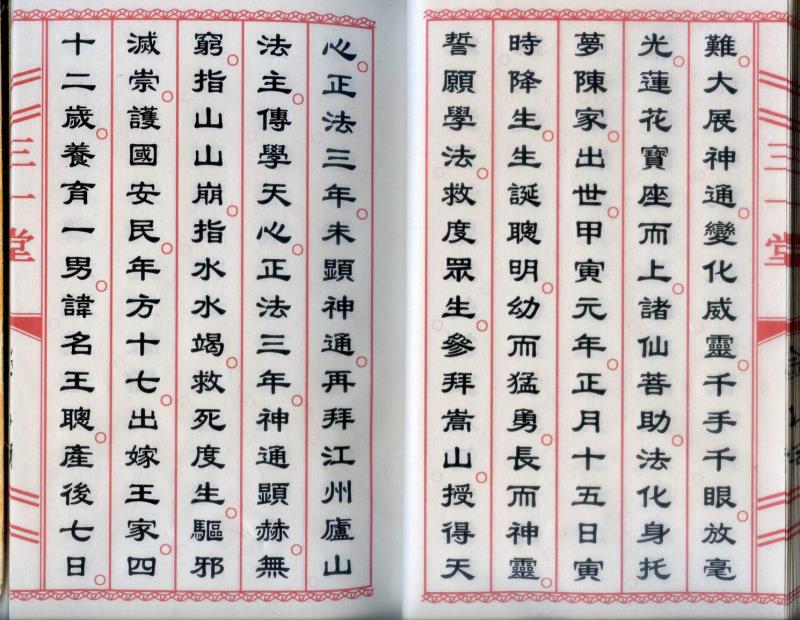 三一堂
難大展神通。變化威靈。千手千眼。放毫
光。蓮花寶座而上。諸仙菩助。法化身托
夢陳家。出世。甲寅元年。正月十五日寅
時降生。生誕聰明。幼而猛勇。長而神靈。
誓願學法。救度眾生。參拜嵩山。授得天
心。正法三年。未顯神通。再拜江州廬山
法主。傳學天心。正法三年。神通顯赫。無
窮。指山山崩。指水水竭。救死度生。驅邪
滅崇。護國安民。年方十七。出嫁王家。四
十二歲。養育一男。諱名王聰。產後七日。
三一堂